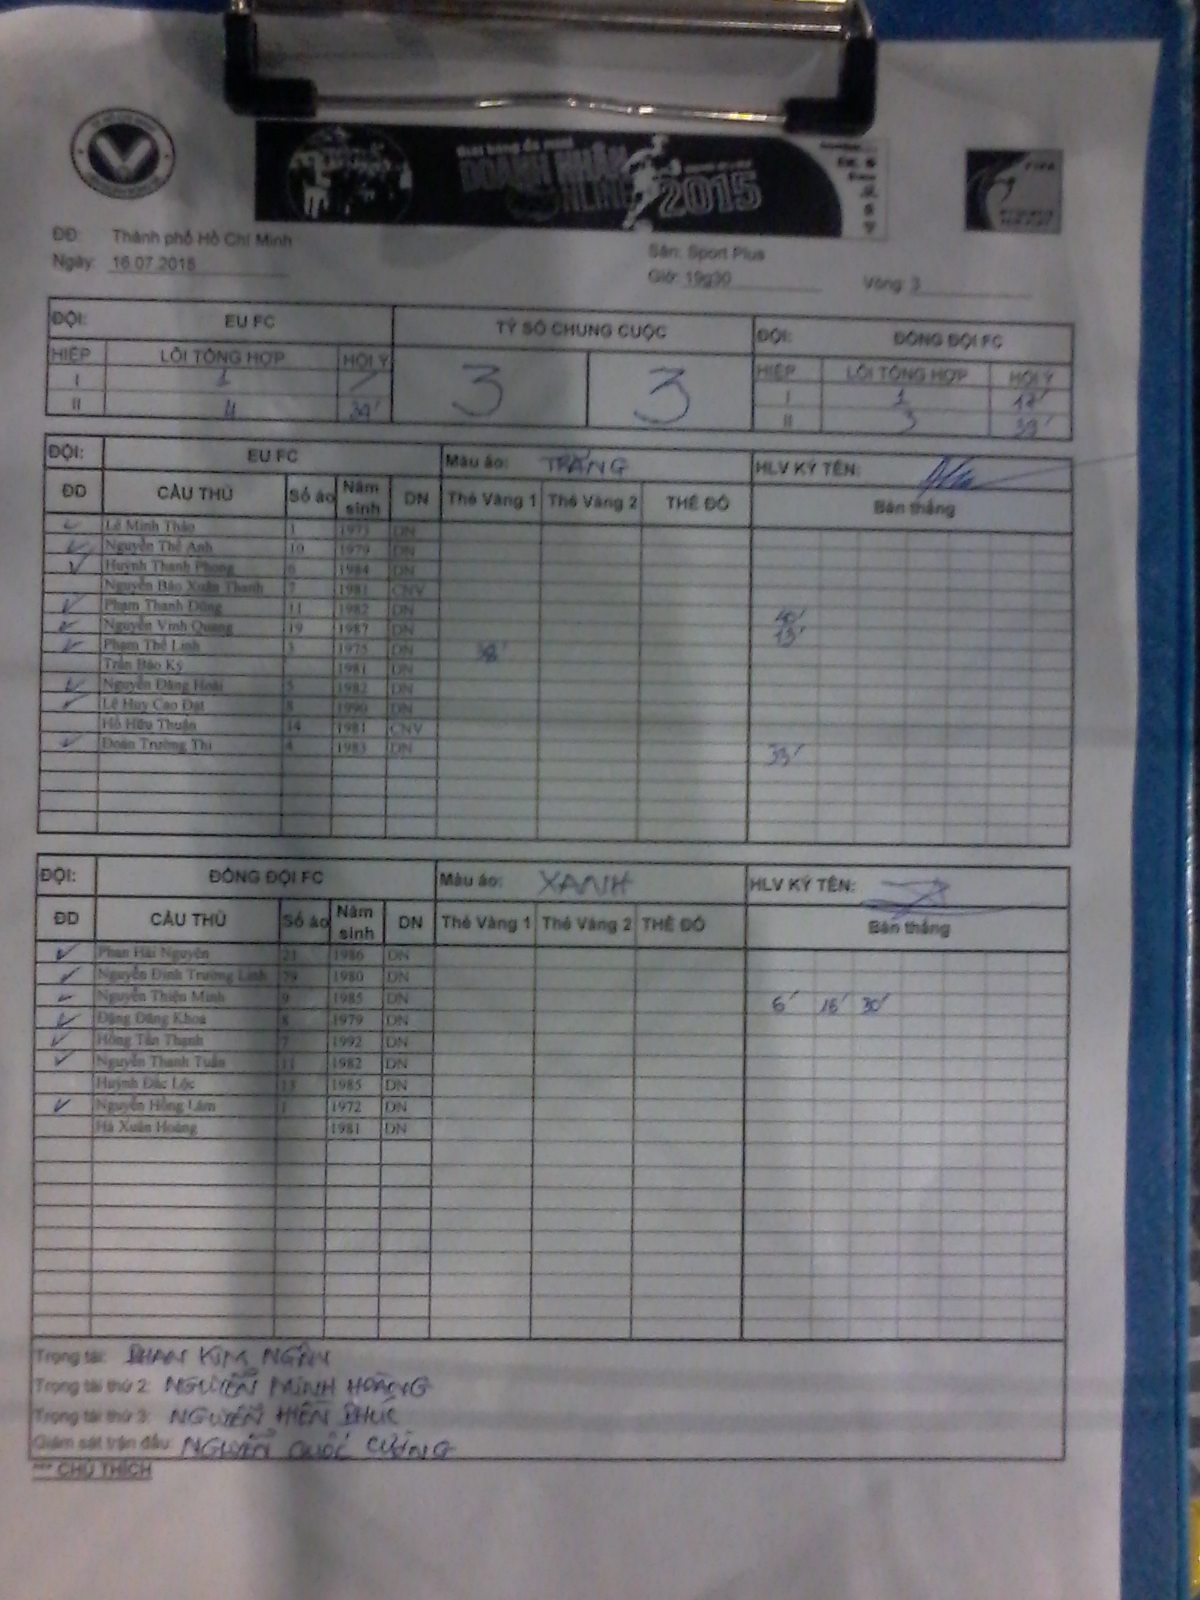 Giải bóng đá mini
DOANH NHÂN
2015
ĐĐ: Thành phố Hồ Chí Minh
Sân: Sport Plus
Ngày: 16.07.2015
Giờ: 19g30 Vòng: 3
ĐỘI: EU FC TỶ SỐ CHUNG CUỘC ĐỘI: ĐỒNG ĐỘI FC
HIỆP LỖI TỔNG HỢP HỘI Ý 3 3 HIỆP LỖI TỔNG HỢP HỘI Ý
I 1 / I 1 17'
II 4 39' II 3 39'
ĐỘI: EU FC Màu áo: TRẮNG HLV KÝ TÊN:
ĐD CẦU THỦ Số áo Năm sinh DN Thẻ Vàng 1 Thẻ Vàng 2 THẺ ĐỎ Bàn thắng
Lê Minh Thảo 1 1973 DN
Nguyễn Thế Anh 10 1979 DN
Huỳnh Thanh Phong 6 1984 DN
Nguyễn Bảo Xuân Thanh 7 1981 CNV
Phạm Thanh Dũng 11 1982 DN 40'
Nguyễn Vinh Quang 19 1987 DN 15'
Phạm Thế Linh 3 1975 DN 38'
Trần Bảo Ký 1981 DN
Nguyễn Đăng Hoài 5 1982 DN
Lê Huy Cao Đạt 8 1990 DN
Hồ Hữu Thuận 14 1981 CNV
Đoàn Trường Thi 4 1983 DN 33'
ĐỘI: ĐỒNG ĐỘI FC Màu áo: XANH HLV KÝ TÊN:
ĐD CẦU THỦ Số áo Năm sinh DN Thẻ Vàng 1 Thẻ Vàng 2 THẺ ĐỎ Bàn thắng
Phan Hải Nguyên 21 1986 DN
Nguyễn Đình Trường Linh 79 1980 DN
Nguyễn Thiện Minh 9 1985 DN 6' 16' 30'
Đặng Đăng Khoa 8 1979 DN
Hồng Tấn Thạnh 7 1992 DN
Nguyễn Thanh Tuấn 11 1982 DN
Huỳnh Đắc Lộc 13 1985 DN
Nguyễn Hồng Lâm 1 1972 DN
Hà Xuân Hoàng 1981 DN
Trọng tài: PHAN KIM NGÂN
Trọng tài thứ 2: NGUYỄN MINH HOÀNG
Trọng tài thứ 3: NGUYỄN HIỀN PHÚC
Giám sát trận đấu: NGUYỄN QUỐC CƯỜNG
*** CHÚ THÍCH